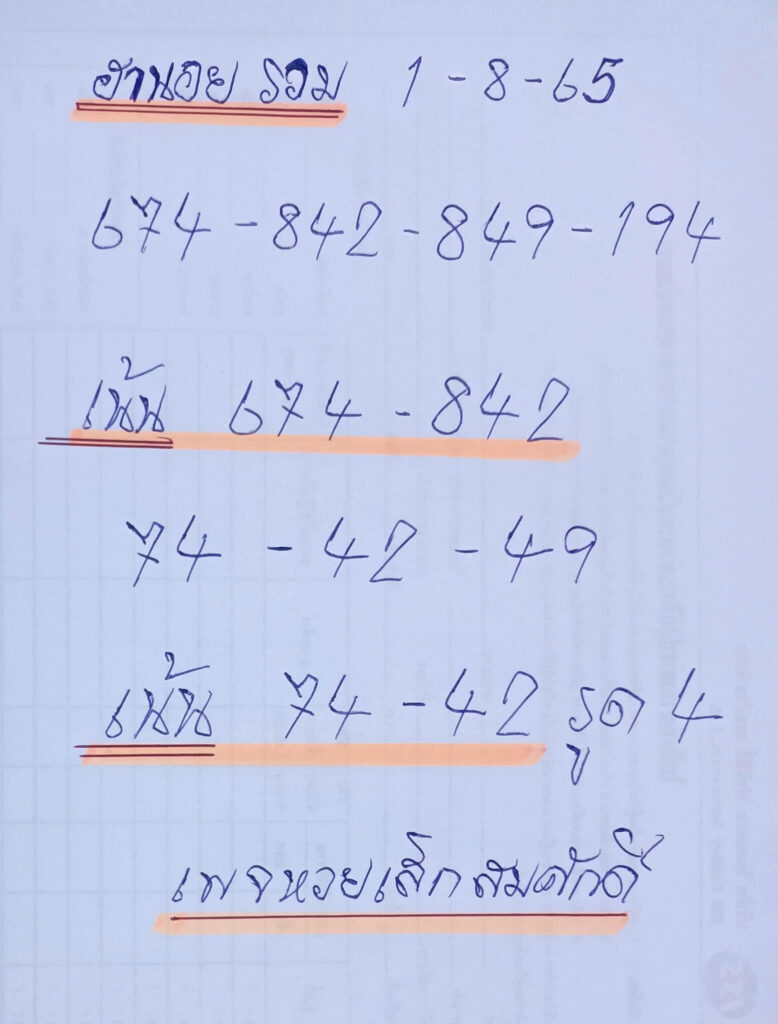 ฮานอย รวม 1-8-65
674-842-849-194
เน้น 674-842
74-42-49
เน้น 74-42 รูด 4
เพจหวยเล็กสมศักดิ์